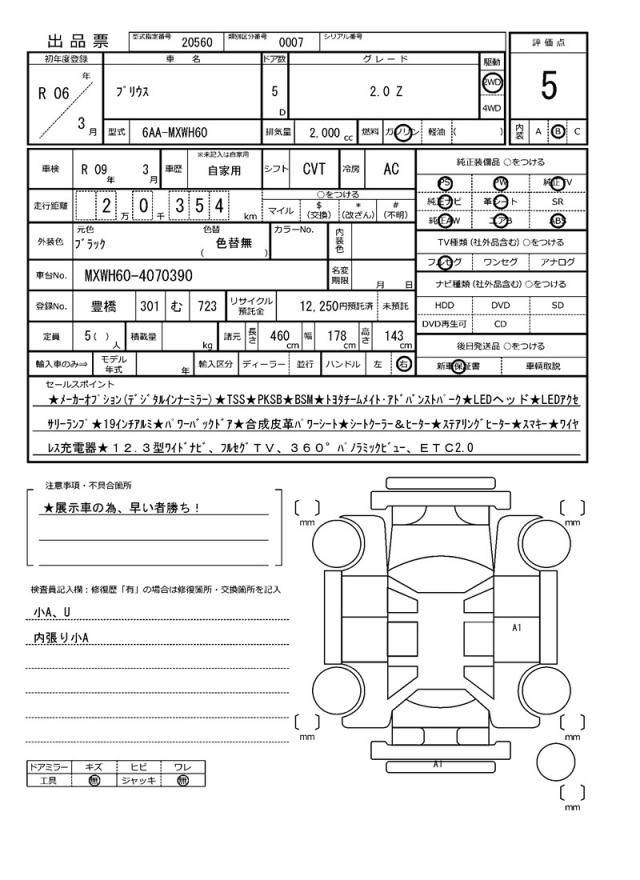 出品票 型式指定番号 20560 類別区分番号 0007 シリアル番号
評価点
5
内装 A B C
初年度登録 車名 ドア数 グレード 駆動
R 06 年 3 月 プリウス 5 D 2.0 Z 2WD 4WD
型式 6AA-MXWH60 排気量 2,000 cc 燃料 ガソリン 軽油 ( )
車検 R 09 年 3 月 車歴 ※未記入は自家用 自家用 シフト CVT 冷房 AC
走行距離 2 万 0 千 3 5 4 km ○をつける
マイル $ (交換) * (改ざん) # (不明)
外装色 元色 ブラック 色替 色替無 ( ) カラーNo. 内装色
車台No. MXWH60-4070390 名変期限 月 日
登録No. 豊橋 301 む 723 リサイクル預託金 12,250円預託済 未預託
定員 5 ( ) 人 積載量 kg 諸元 長さ 460 cm 幅 178 cm 高さ 143 cm
輸入車のみ⇒ モデル年式 年 輸入区分 ディーラー 並行 ハンドル 左 右
純正装備品 ○をつける
PS PW 純正TV
純正ナビ 革シート SR
純正AW エアB ABS
TV種類 (社外品含む) ○をつける
フルセグ ワンセグ アナログ
ナビ種類 (社外品含む) ○をつける
HDD DVD SD
DVD再生可 CD
後日発送品 ○をつける
新車保証書 車輌取説
セールスポイント
★メーカーオプション(デジタルインナーミラー)★TSS★PKSB★BSM★トヨタチームメイト・アドバンストパーク★LEDヘッド★LEDアクセ
サリーランプ★19インチアルミ★パワーバックドア★合成皮革パワーシート★シートクーラー&ヒーター★ステアリングヒーター★スマキー★ワイヤ
レス充電器★12.3型ワイドナビ、フルセグTV、360°パノラミックビュー、ETC2.0
注意事項・不具合箇所
★展示車の為、早い者勝ち!
検査員記入欄:修復歴「有」の場合は修復箇所・交換箇所を記入
小A、U
内張り小A
ドアミラー キズ ヒビ ワレ
工具 無 ジャッキ 無
mm
mm
A1
mm
mm
A1
mm